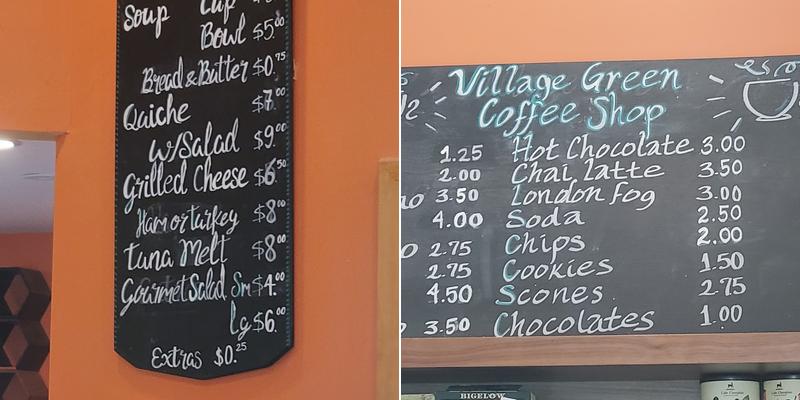 Soup Cup
Bowl $5.00
Bread & Butter $0.75
Quiche $7.00
w/Salad $9.00
Grilled Cheese $6.50
Ham or turkey $8.00
Tuna Melt $8.00
Gourmet Salad Sm $4.00
lg $6.00
Extras $0.25
Village Green
Coffee Shop
1.25 Hot Chocolate 3.00
2.00 Chai latte 3.50
3.50 London Fog 3.00
4.00 Soda 2.50
2.75 Chips 2.00
2.75 Cookies 1.50
4.50 Scones 2.75
3.50 Chocolates 1.00
BIGELOW